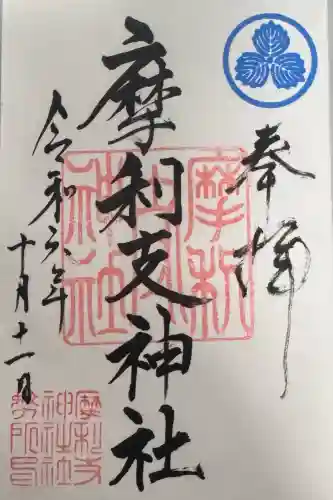 奉拝
摩利支神社
令和六年
十月十一日
摩利支神社
摩利支神社社務所印